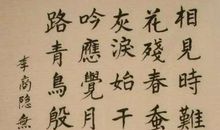 相見時難
花殘春蚕
灰淚始干
吟應覺月
路青鳥殷
李商隐無